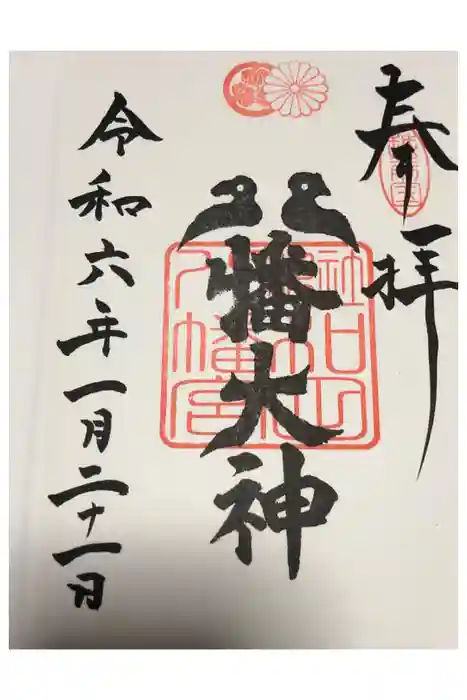 奉拝
八幡大神
八幡宮
令和六年一月二十一日